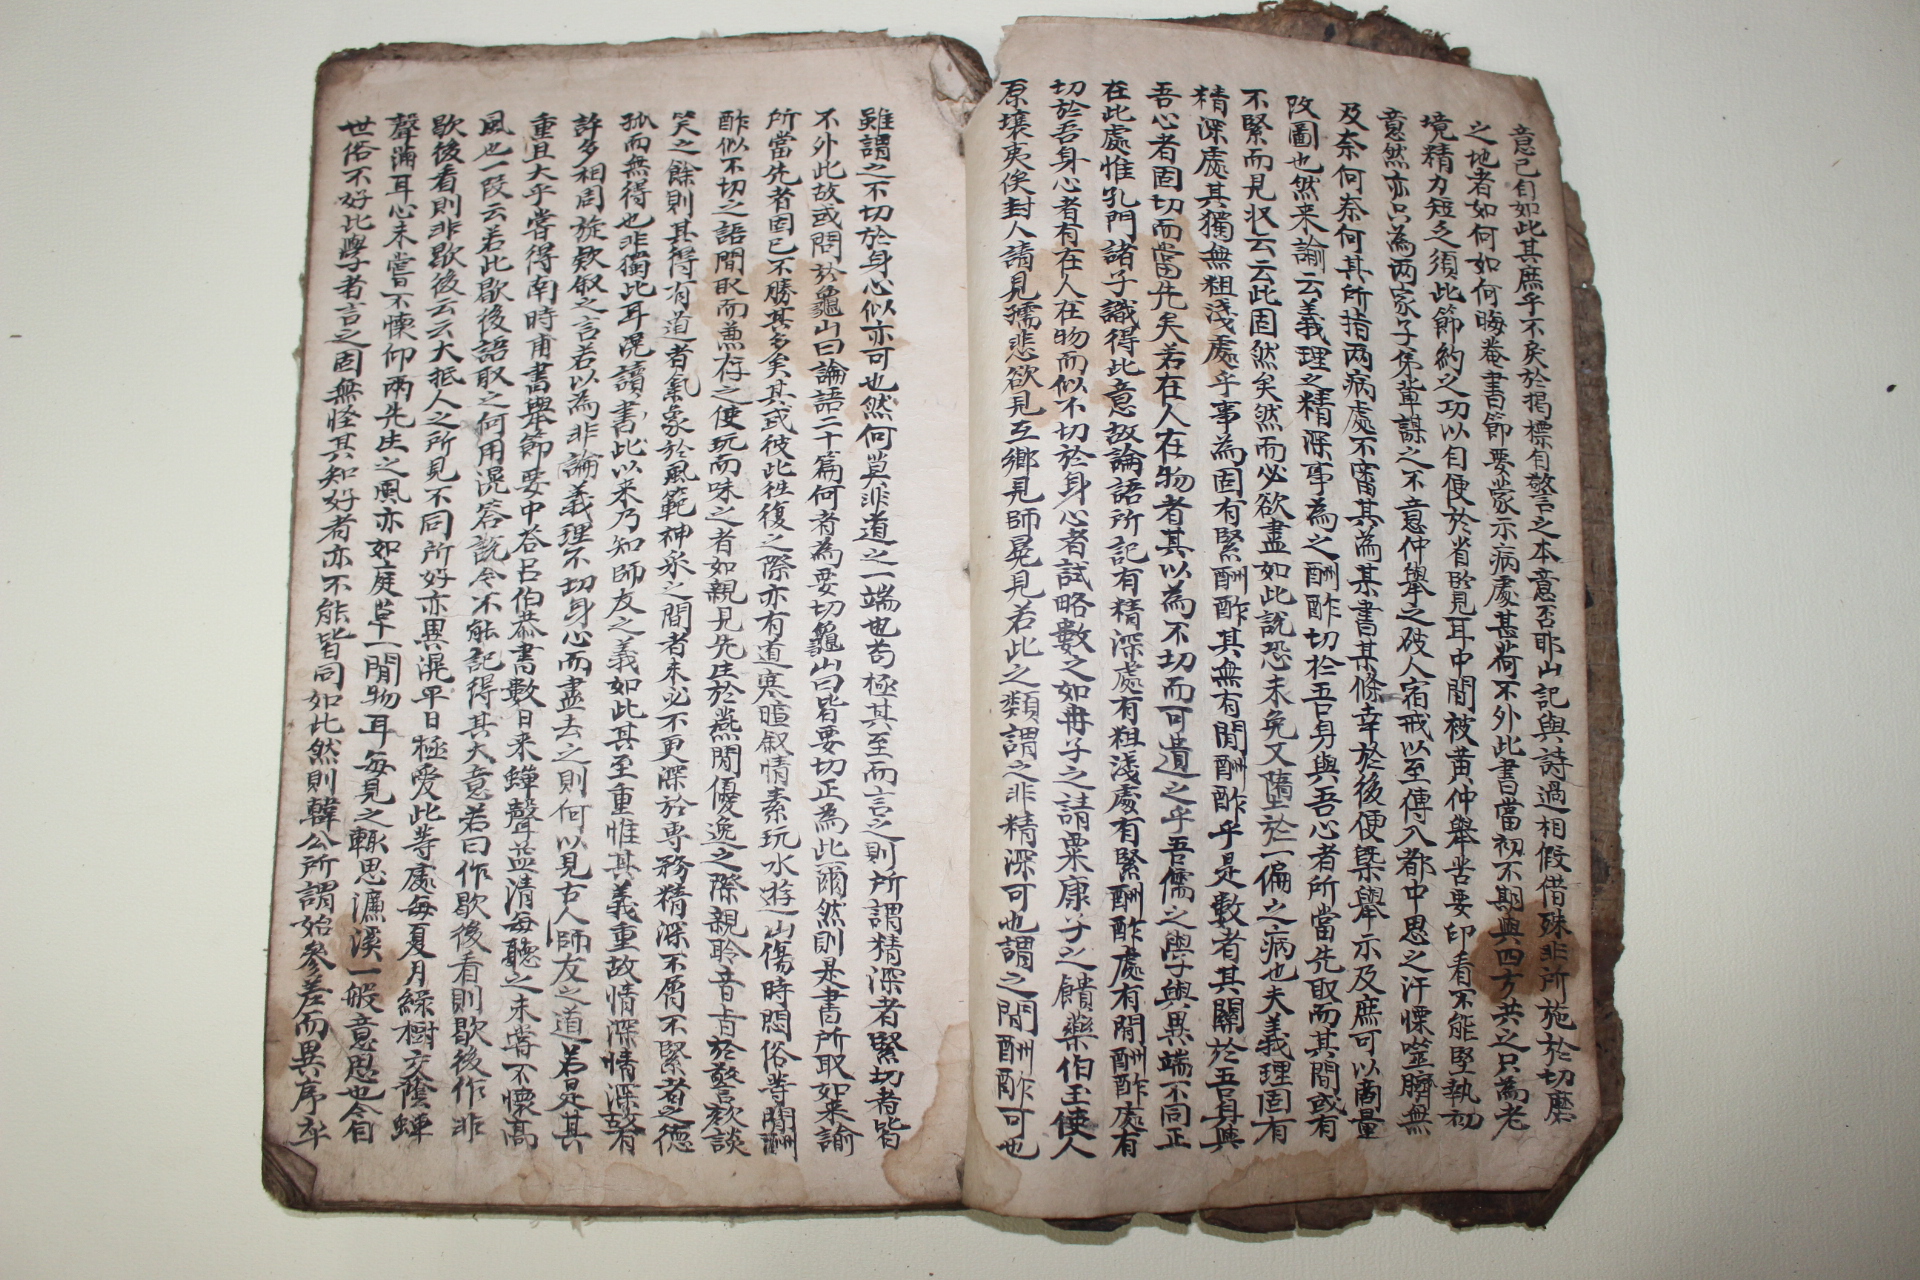 意已自如此其庶乎不戾於揭標自警之本意否耶山記與詩過相假借殊非所施於切磨
之地者如何如何晦菴書節要蒙示病處甚荷不外此書當初不期與四方共之只為老
境精力短乏須此節約之功以自便於省覽耳中間被黃仲舉苦要印看不能堅執初
意然亦只為两家子弟輩謀之不意仲舉之破人宿戒以至傳入都中思之汗慄噬臍無
及奈何奈何其所指两病處不審其為某書某條幸於後便槩舉示及庶可以商量
改圖也然来諭云義理之精深事為之酬酢切於吾身與吾心者所當先取而其間或有
不緊而見收云云此固然矣然而必欲盡如此說恐未免又墮於一偏之病也夫義理固有
精深處其獨無粗淺處乎事為固有緊酬酢其無有閒酬酢乎是數者其關於吾身與
吾心者固切而當先矣若在人在物者其以為不切而可遺之乎吾儒之學與異端不同正
在此處惟孔門諸子識得此意故論語所記有精深處有粗淺處有緊酬酢處有閒酬酢處有
切於吾身心者有在人在物而似不切於身心者試略數之如冉子之請粟康子之饋藥伯玉使人
原壤夷俟封人請見孺悲欲見互鄉見師冕見若此之類謂之非精深可也謂之閒酬酢可也
雖謂之不切於身心似亦可也然何莫非道之一端也苟極其至而言之則所謂精深者緊切者皆
不外此故或問於龜山曰論語二十篇何者為要切龜山曰皆要切正為此爾然則是書所取如来諭
所當先者固已不勝其多矣其或彼此往復之際亦有道寒暄叙情素玩水遊山傷時悶俗等閒酬
酢似不切之語間取而兼存之使玩而味之者如親見先生於燕閒優逸之際親聆音旨於謦欬談
笑之餘則其得有道者氣象於風範神采之間者未必不更深於専務精深不屑不緊者之德
孤而無得也非獨此耳滉讀書此以来乃知師友之義如此其至重惟其義重故情深情深故有
許多相周旋欵叙之言若以為非論義理不切身心而盡去之則何以見古人師友之道若是其
重且大乎嘗得南時甫書舉節要中答呂伯恭書數日来蟬聲益清每聽之未嘗不懷高
風也一段云若此歇後語取之何用滉答說今不能記得其大意若曰作歇後看則歇後作非
歇後看則非歇後云云大抵人之所見不同所好亦異滉平日極愛此等處每夏月綠樹交蔭蟬
聲滿耳心未嘗不懷仰兩先生之風亦如庭草一閒物耳每見之輒思濂溪一般意思也今自
世俗不好此學者言之固無怪其知好者亦不能皆同如此然則韓公所謂始參差而異序卒